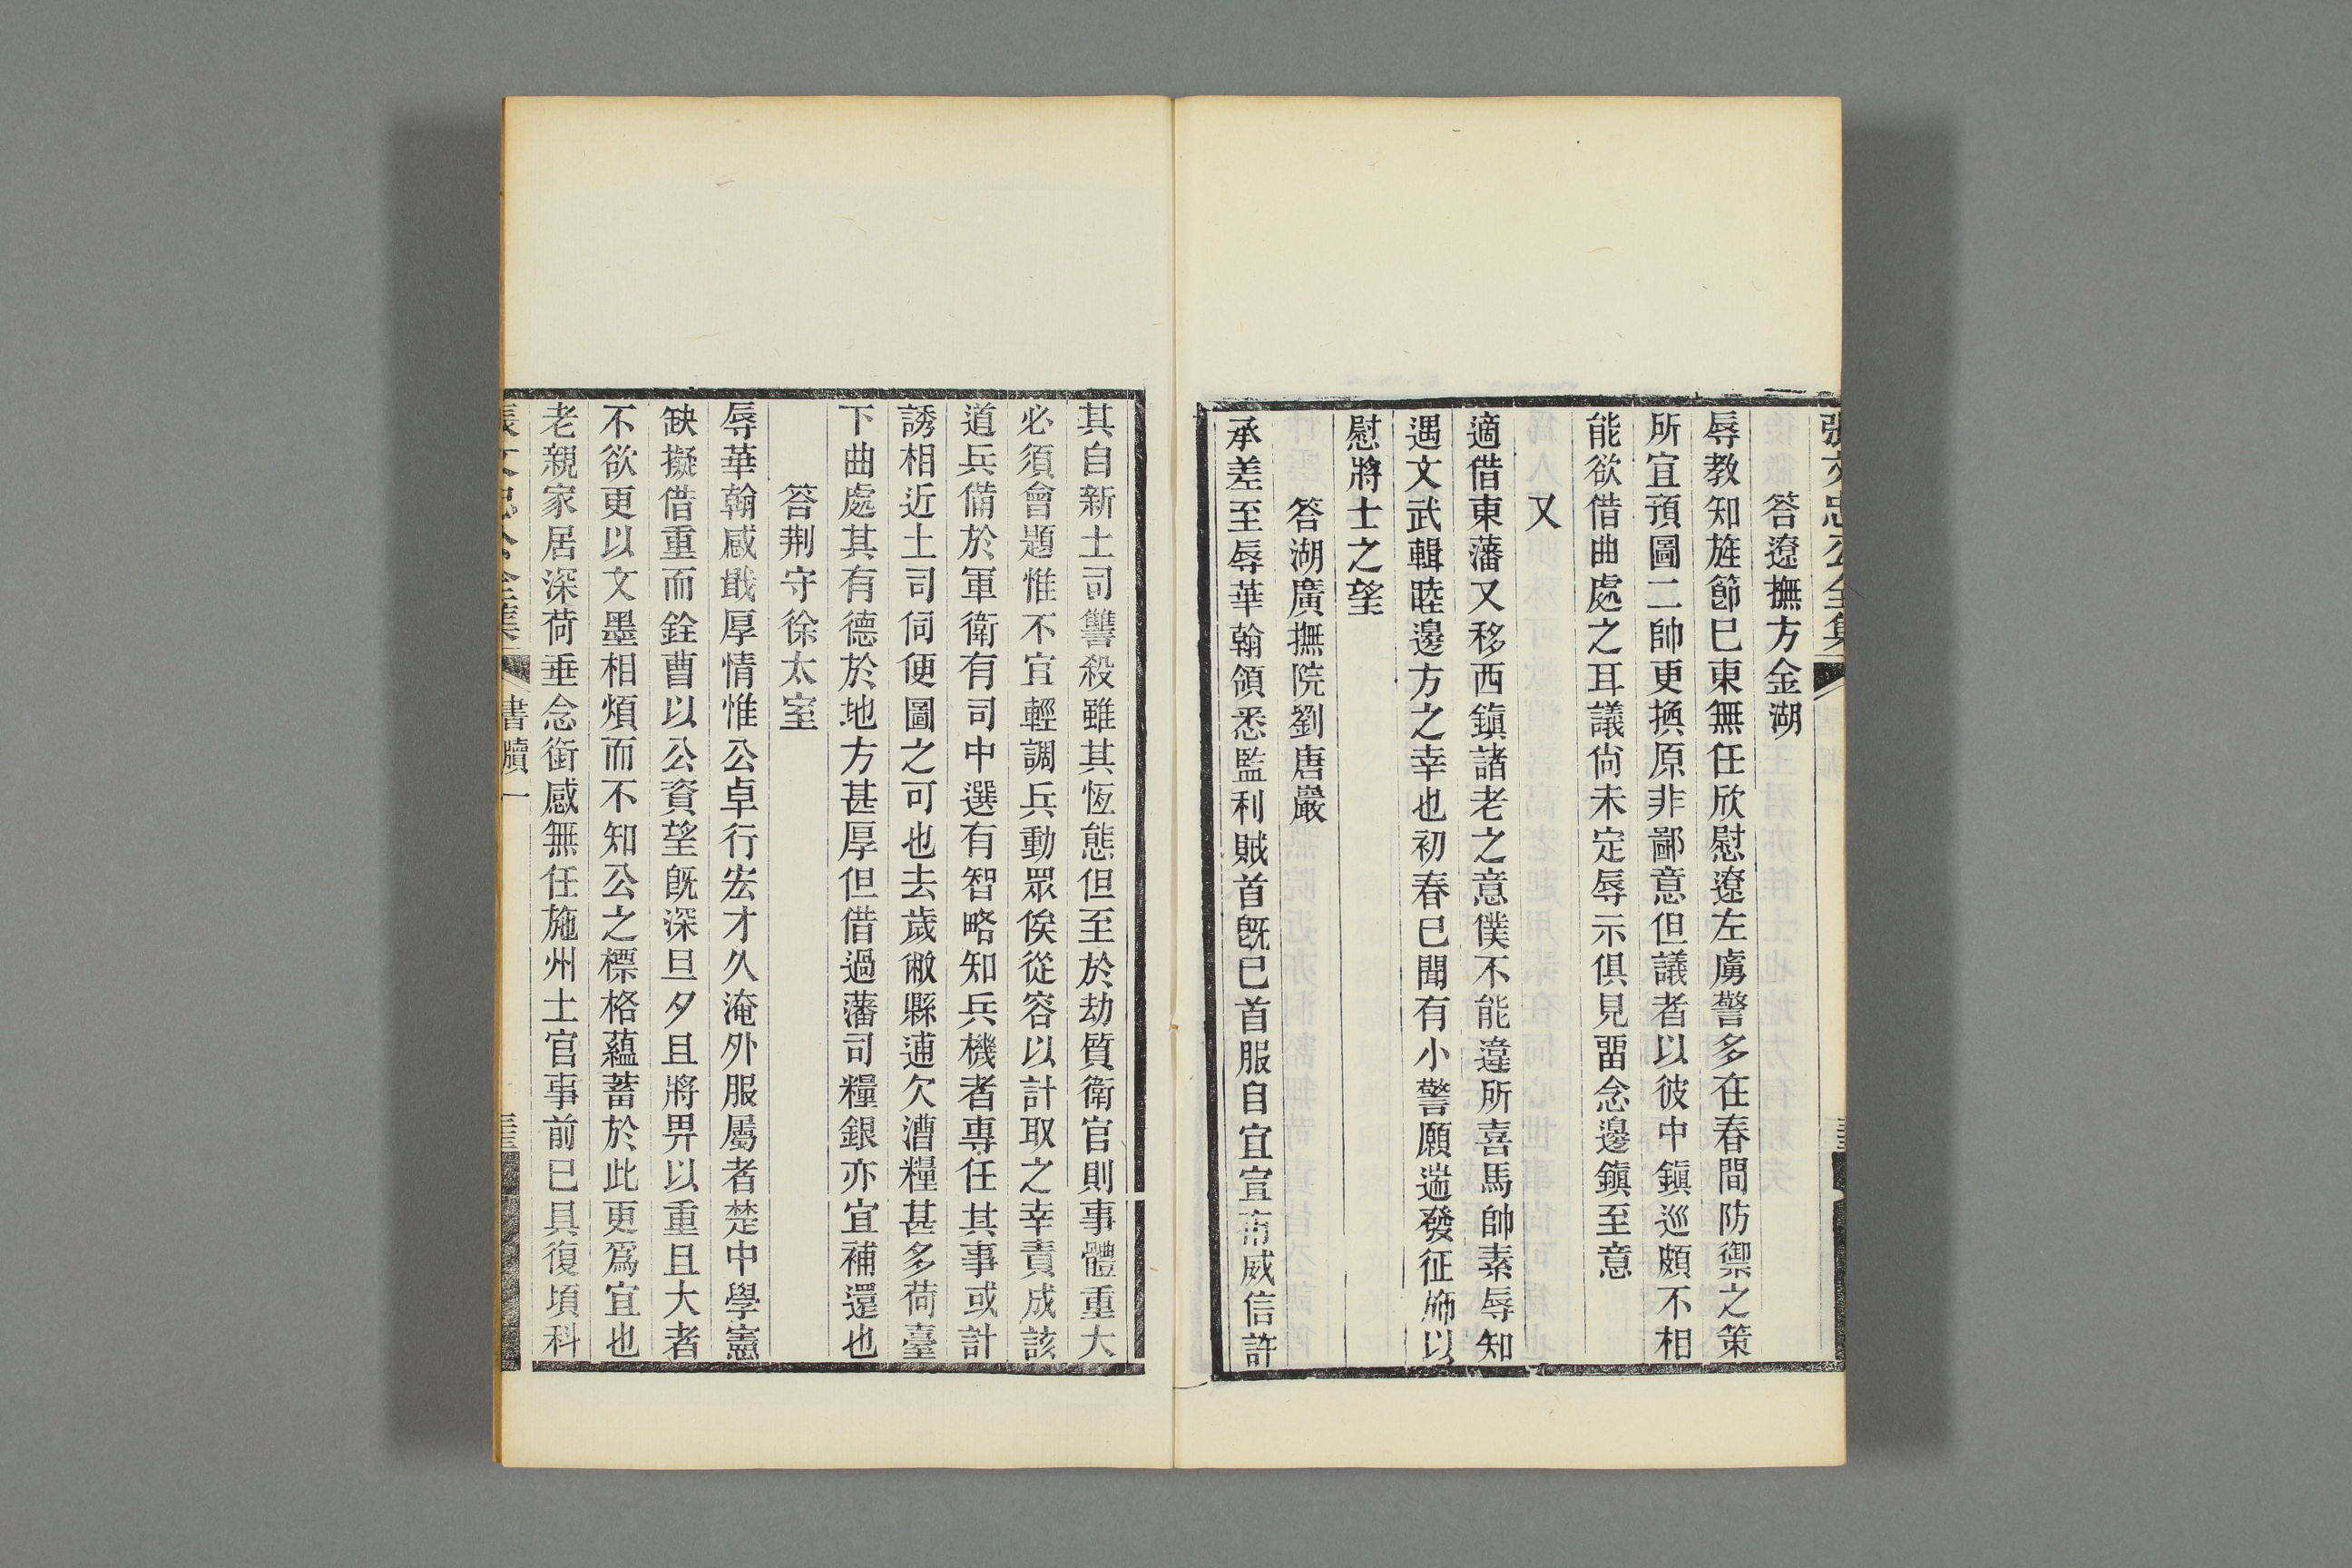 張文忠公全集
答遼撫方金湖
辱教知旌節已東無任欣慰遼左虜警多在春間防禦之策
所宜預圖二帥更換原非鄙意但議者以彼中鎭巡頗不相
能欲借曲處之耳議尙未定辱示俱見畱念邊鎭至意
又
適借東藩又移西鎭諸老之意僕不能違所喜馬帥素辱知
遇文武輯睦邊方之幸也初春已聞有小警願遄發征斾以
慰將士之望
答湖廣撫院劉唐巖
承差至辱華翰領悉監利賊首旣已首服自宜宣布威信許
其自新土司讐殺雖其恆態但至於劫質衛官則事體重大
必須會題惟不宜輕調兵動眾俟從容以計取之幸責成該
道兵備於軍衛有司中選有智略知兵機者專任其事或計
誘相近土司伺便圖之可也去歲敝縣逋欠漕糧甚多荷臺
下曲處其有德於地方甚厚但借過藩司糧銀亦宜補還也
答荆守徐太室
辱華翰感戢厚情惟公卓行宏才久淹外服屬者楚中學憲
缺擬借重而銓曹以公資望旣深旦夕且將畀以重且大者
不欲更以文墨相煩而不知公之標格蘊蓄於此更爲宜也
老親家居深荷垂念銜感無任施州土官事前已具復頃科
張文忠公全集
書牘一